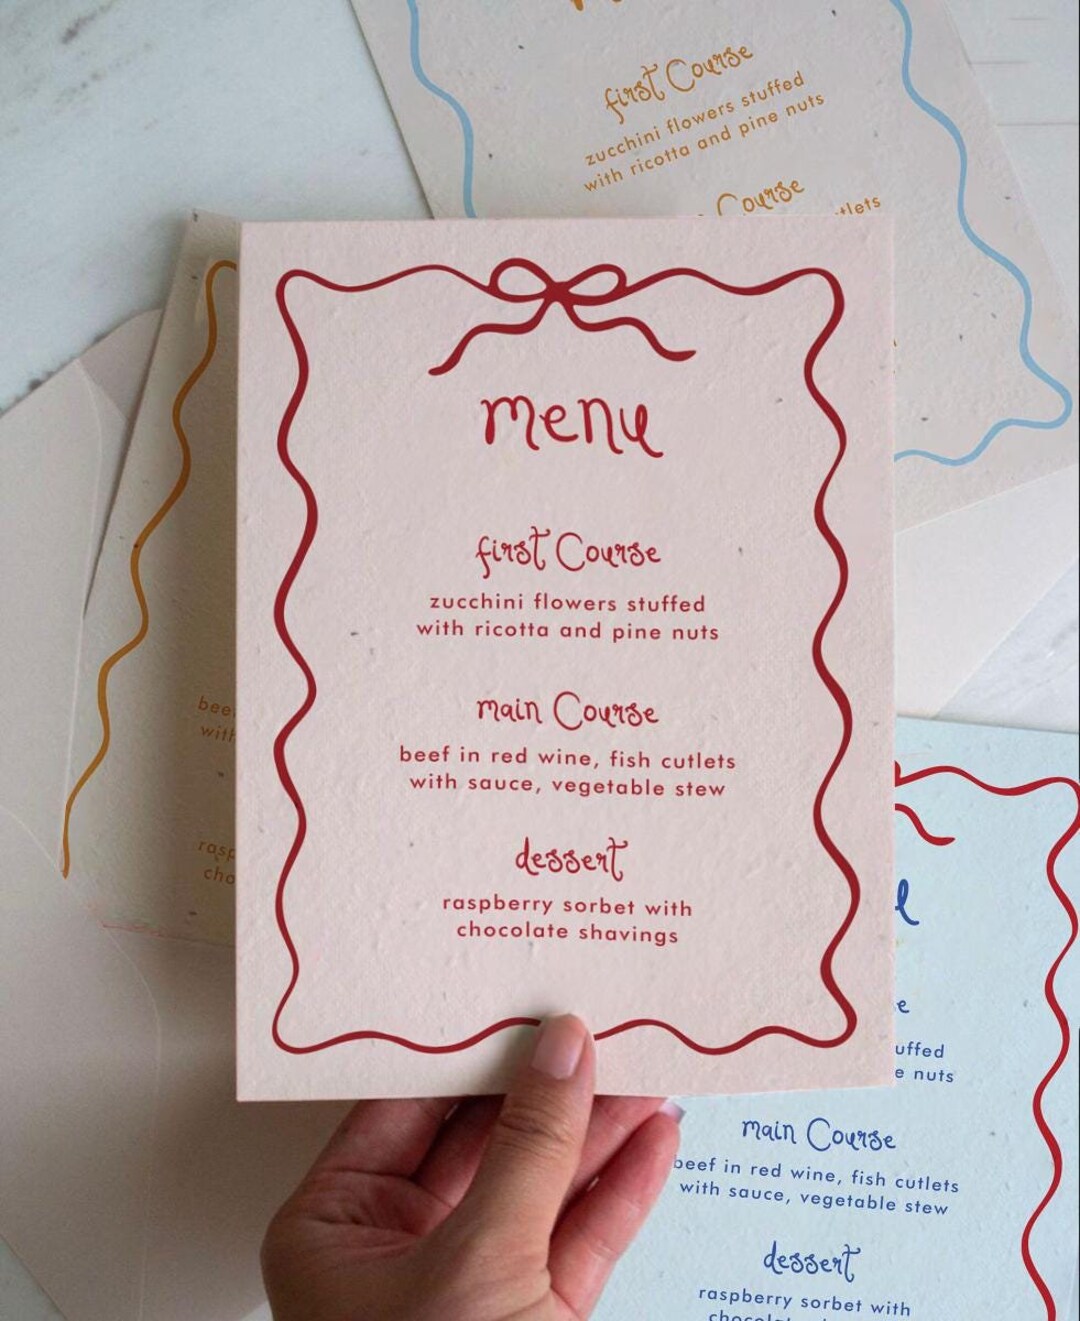 first Course
zucchini flowers stuffed
with ricotta and pine nuts
Course
menu
first Course
zucchini flowers stuffed
with ricotta and pine nuts
main Course
beef in red wine, fish cutlets
with sauce, vegetable stew
dessert
raspberry sorbet with
chocolate shavings
beef
with
nuts
main Course
beef in red wine, fish cutlets
with sauce, vegetable stew
dessert
raspberry sorbet with